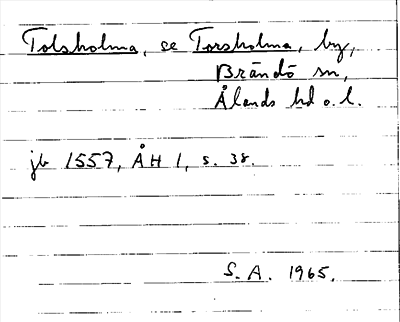 Tolsholma, se Torsholma, by,
Brändö sn,
Ålands hd o. l.
jb 1557, ÅH 1, s. 38.
S. A. 1965.